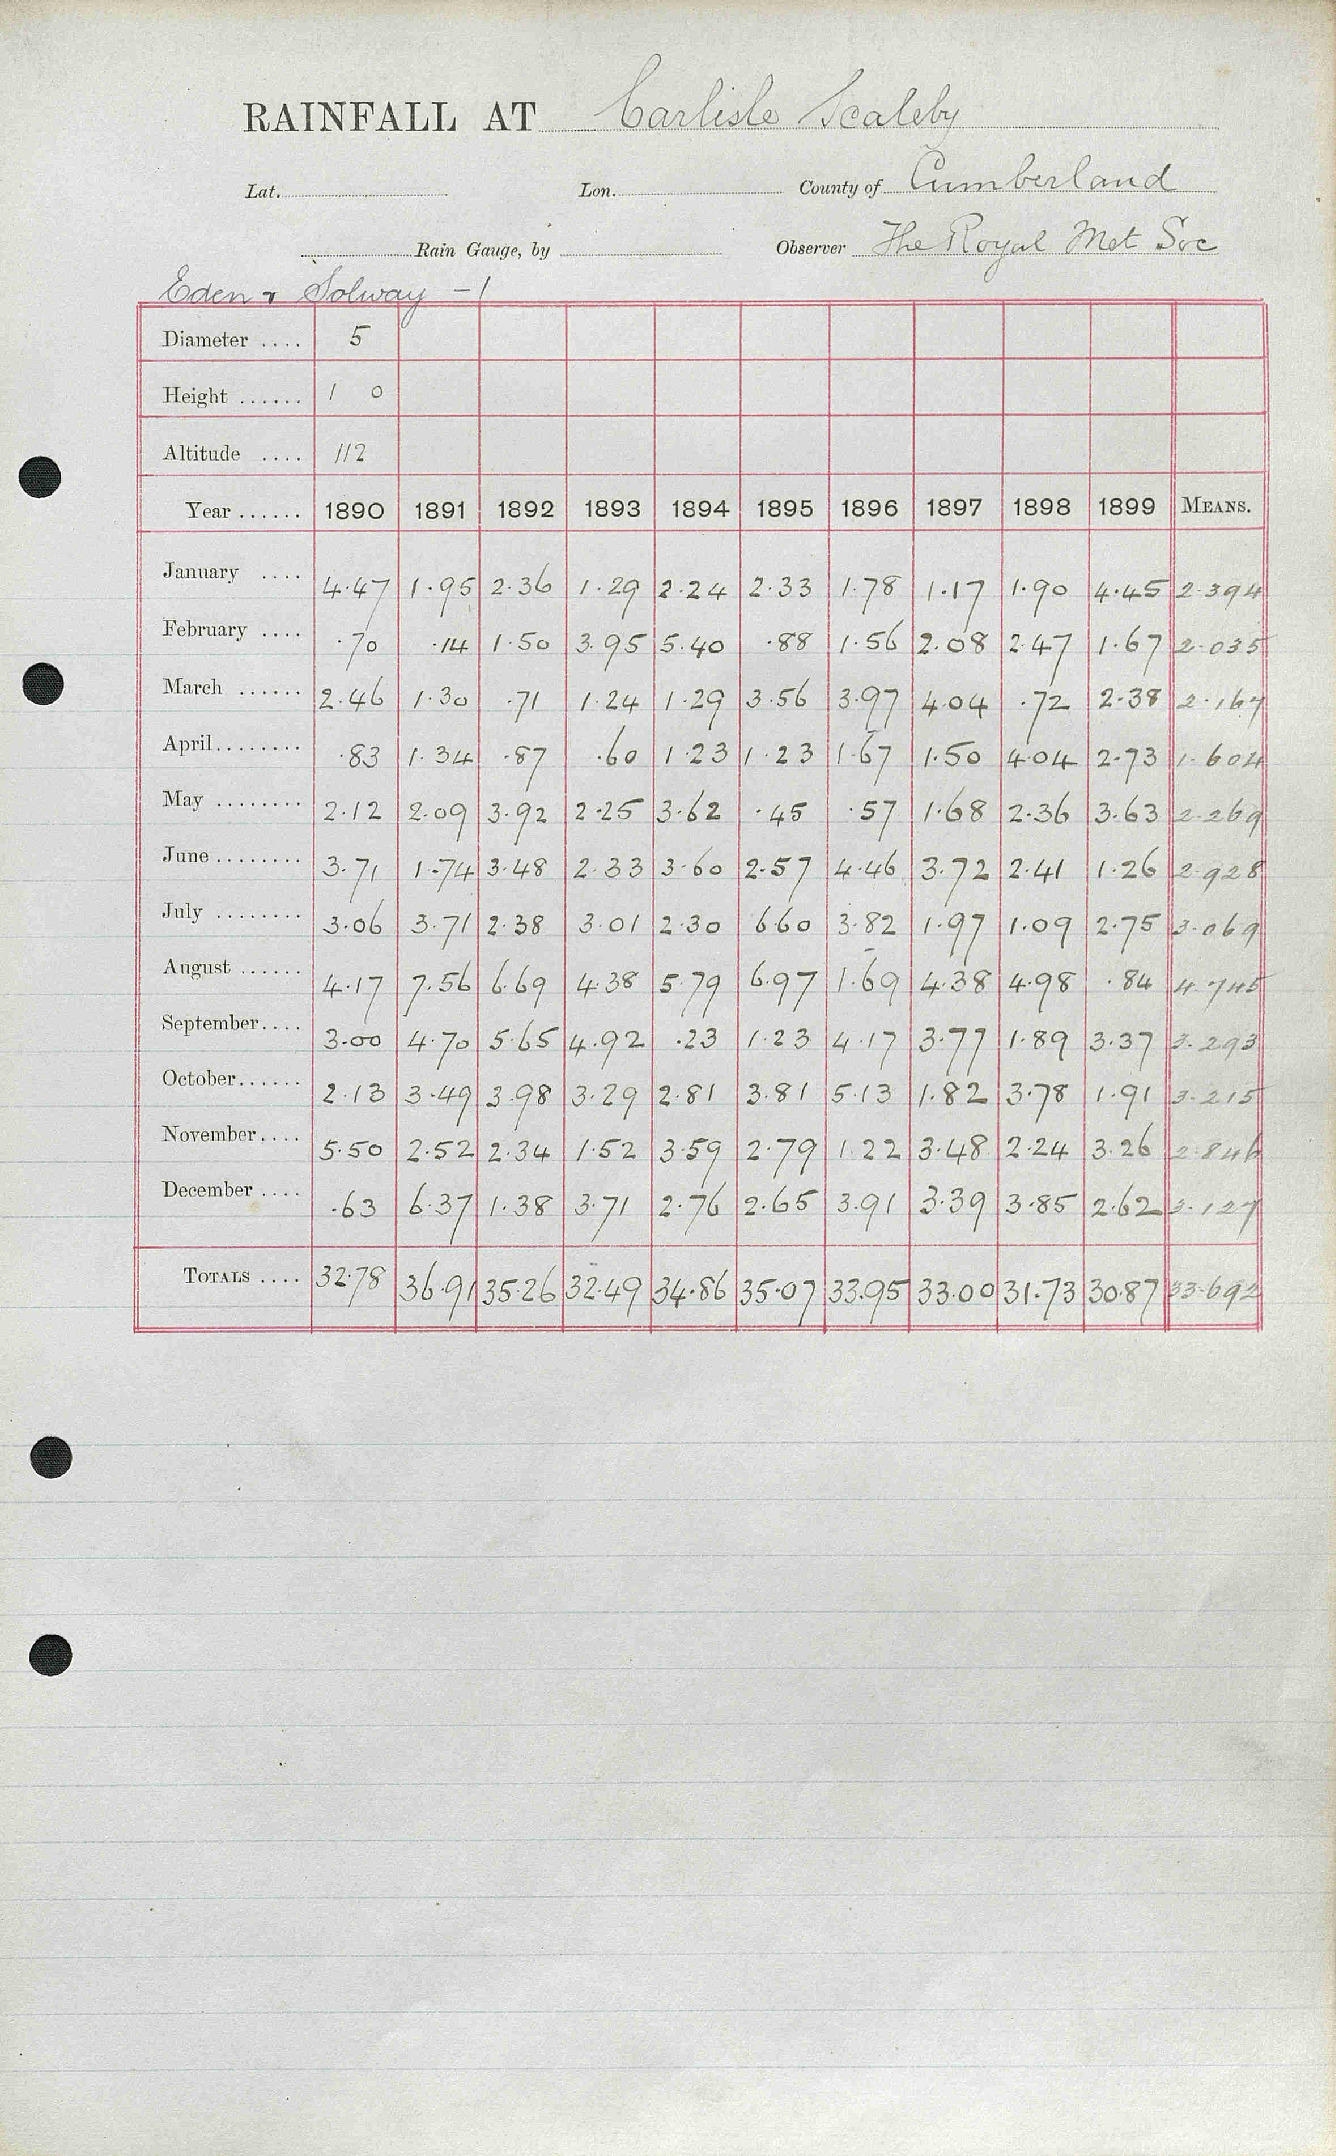 RAINFALL AT Carlisle Scaleby
Lat. Lon. County of Cumberland
Rain Gauge, by Observer The Royal Met Soc
Eden & Solway - 1
Diameter .... 5
Height ...... 1 0
Altitude .... 112
Year ...... 1890 1891 1892 1893 1894 1895 1896 1897 1898 1899 MEANS.
January .... 4.47 1.95 2.36 1.29 2.24 2.33 1.78 1.17 1.90 4.45 2.394
February .... .70 .14 1.50 3.95 5.40 .88 1.56 2.08 2.47 1.67 2.035
March ...... 2.46 1.30 .71 1.24 1.29 3.56 3.97 4.04 .72 2.38 2.167
April........ .83 1.34 .87 .60 1.23 1.23 1.67 1.50 4.04 2.73 1.604
May ........ 2.12 2.09 3.92 2.25 3.62 .45 .57 1.68 2.36 3.63 2.269
June ........ 3.71 1.74 3.48 2.33 3.60 2.57 4.46 3.72 2.41 1.26 2.928
July ........ 3.06 3.71 2.38 3.01 2.30 6.60 3.82 1.97 1.09 2.75 3.069
August ...... 4.17 7.56 6.69 4.38 5.79 6.97 1.69 4.38 4.98 .84 4.745
September.... 3.00 4.70 5.65 4.92 .23 1.23 4.17 3.77 1.89 3.37 3.293
October...... 2.13 3.49 3.98 3.29 2.81 3.81 5.13 1.82 3.78 1.91 3.215
November.... 5.50 2.52 2.34 1.52 3.59 2.79 1.22 3.48 2.24 3.26 2.846
December .... .63 6.37 1.38 3.71 2.76 2.65 3.91 3.39 3.85 2.62 3.127
TOTALS .... 32.78 36.91 35.26 32.49 34.86 35.07 33.95 33.00 31.73 30.87 33.692